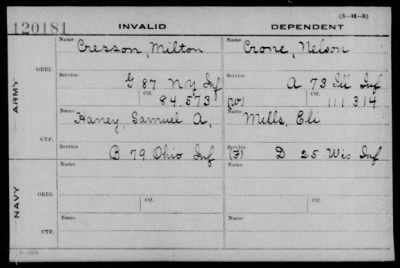 (3-18-5)
120181 INVALID DEPENDENT
Name Cresson, Milton Name Crone, Nelson
ARMY
ORIG.
Service G 87 NY Inf Service A 73 Ill Inf
Ctf. 84.573 (W) Ctf. 111314
Name Haney, Samuel A. Name Mills, Eli
ORIG.
Service B 79 Ohio Inf Service (F) D 25 Wis Inf
NAVY
Name Ctf. Name Ctf.
ORIG.
Service Service
Name Name
ORIG.
Service Service